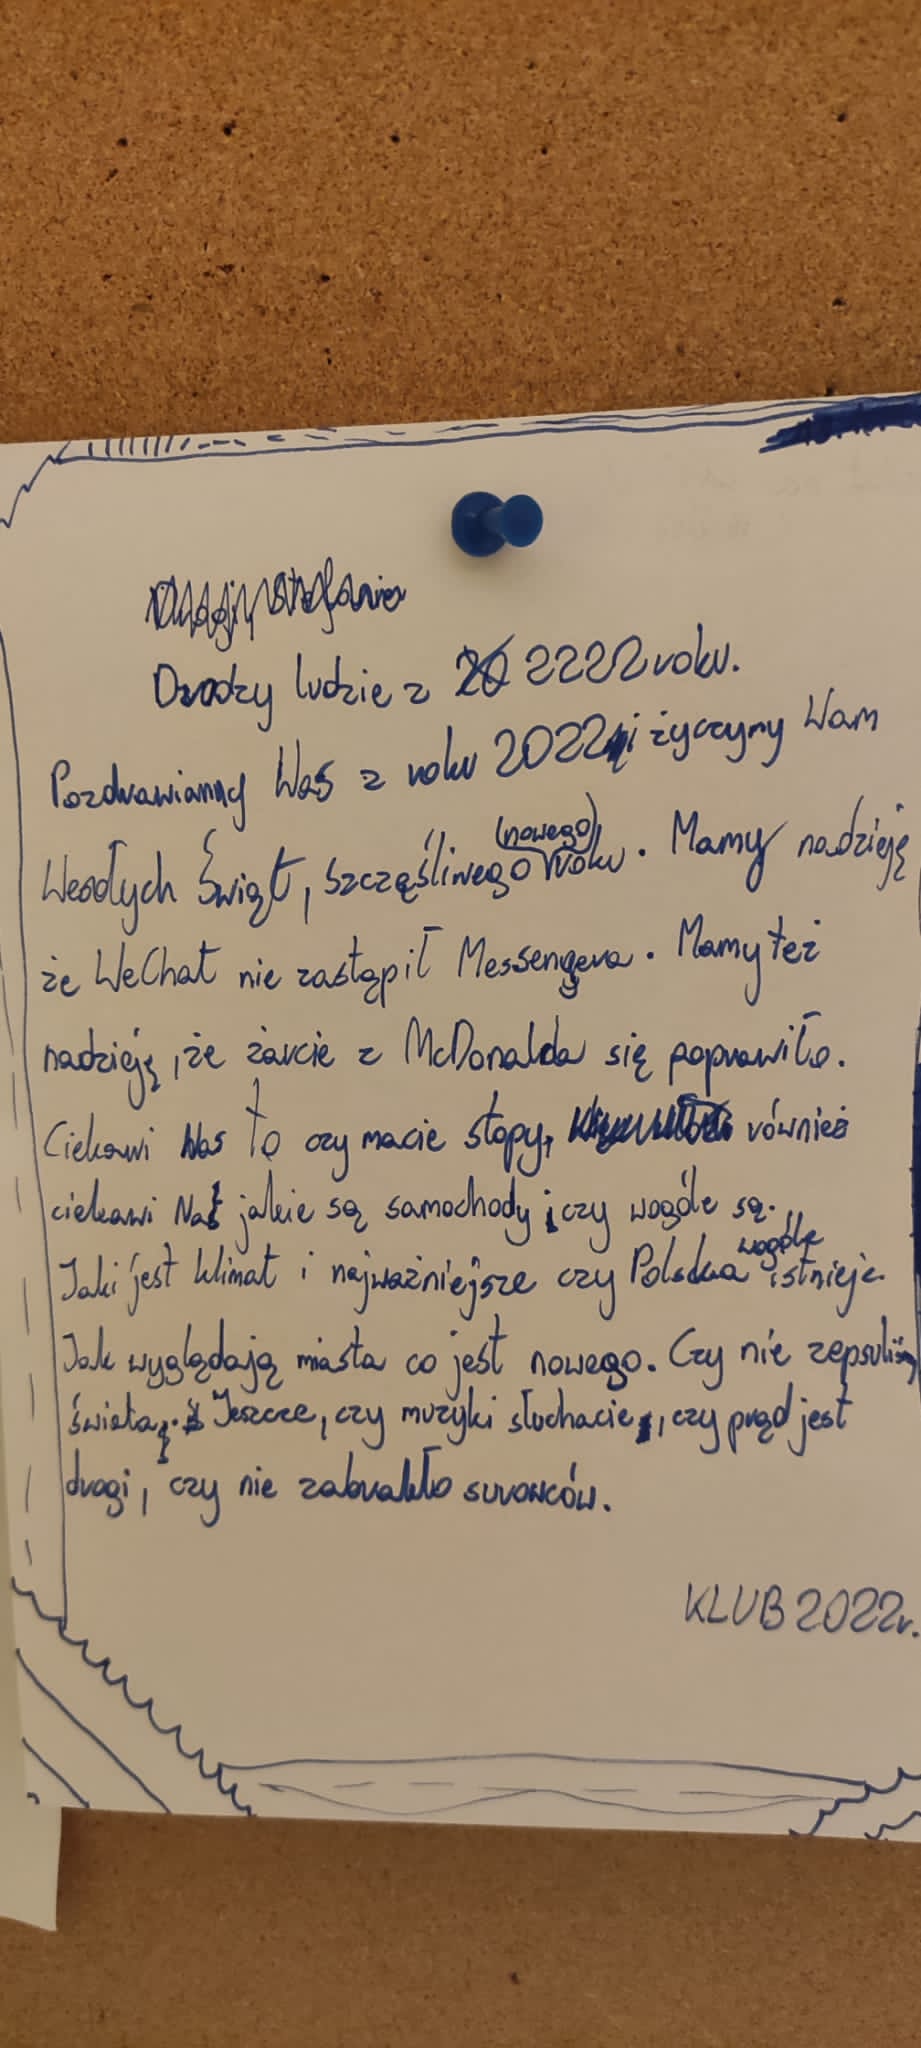 Drodzy ludzie z 2222 roku.
Pozdrawiamy Was z roku 2022 i życzymy Wam
Wesołych Świąt, szczęśliwego (nowego) roku. Mamy nadzieję
że WeChat nie zastąpił Messengera. Mamy też
nadzieję, że żarcie z McDonalda się poprawiło.
Ciekawi Nas to czy macie stopy, również
ciekawi Nas jakie są samochody i czy wogóle są.
Jaki jest klimat i najważniejsze czy Polska wogóle istnieje.
Jak wyglądają miasta co jest nowego. Czy nie zepsuliśmy
świata. Jeszcze, czy muzyki słuchacie, czy prąd jest
drogi, czy nie zabrakło surowców.
KLUB 2022r.